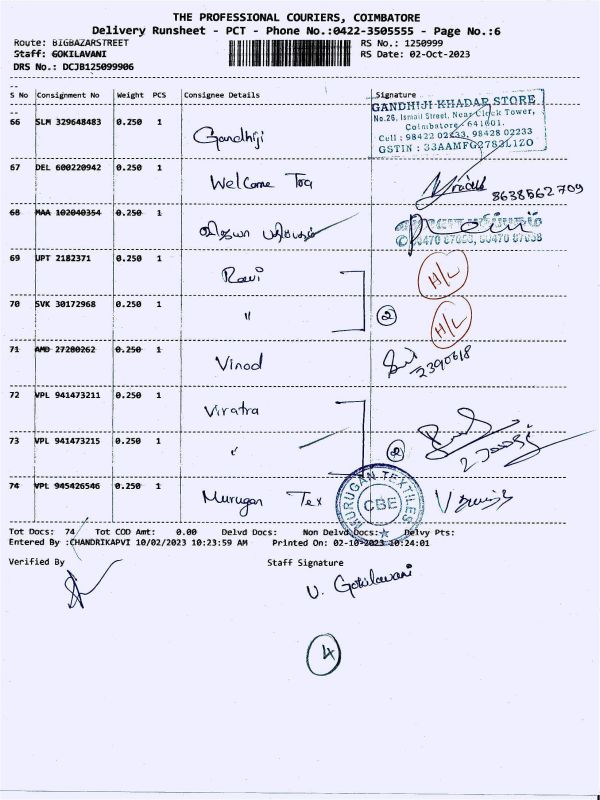 THE PROFESSIONAL COURIERS, COIMBATORE
Delivery Runsheet - PCT - Phone No.:0422-3505555 - Page No.:6
Route: BIGBAZARSTREET RS No.: 1250999
Staff: GOKILAVANI RS Date: 02-Oct-2023
DRS No.: DCJB125099906
S No Consignment No Weight PCS Consignee Details Signature
66 SLM 329648483 0.250 1 Gandhiji
GANDHIJI KHADAR STORE
No.26, Ismail Street, Near Clock Tower,
Coimbatore - 641001.
Cell : 98422 02233, 98428 02233
GSTIN : 33AAMFG2783L1ZO
67 DEL 600220942 0.250 1 Welcome
8638562709
68 MAA 102040354 0.250 1
69 UPT 2182371 0.250 1 Ravi H/L
70 SVK 30172968 0.250 1 " ② H/L
71 AMD 27280262 0.250 1 Vinod
2390618
72 VPL 941473211 0.250 1 Viratra
73 VPL 941473215 0.250 1 " ②
74 VPL 945426546 0.250 1 Murugan Tex
MURUGAN TEXTILES
CBE
Tot Docs: 74 Tot COD Amt: 0.00 Delvd Docs: Non Delvd Docs: Delvy Pts:
Entered By :CHANDRIKAPVI 10/02/2023 10:23:59 AM Printed On: 02-10-2023 10:24:01
Verified By Staff Signature
V. Gokilavani
④